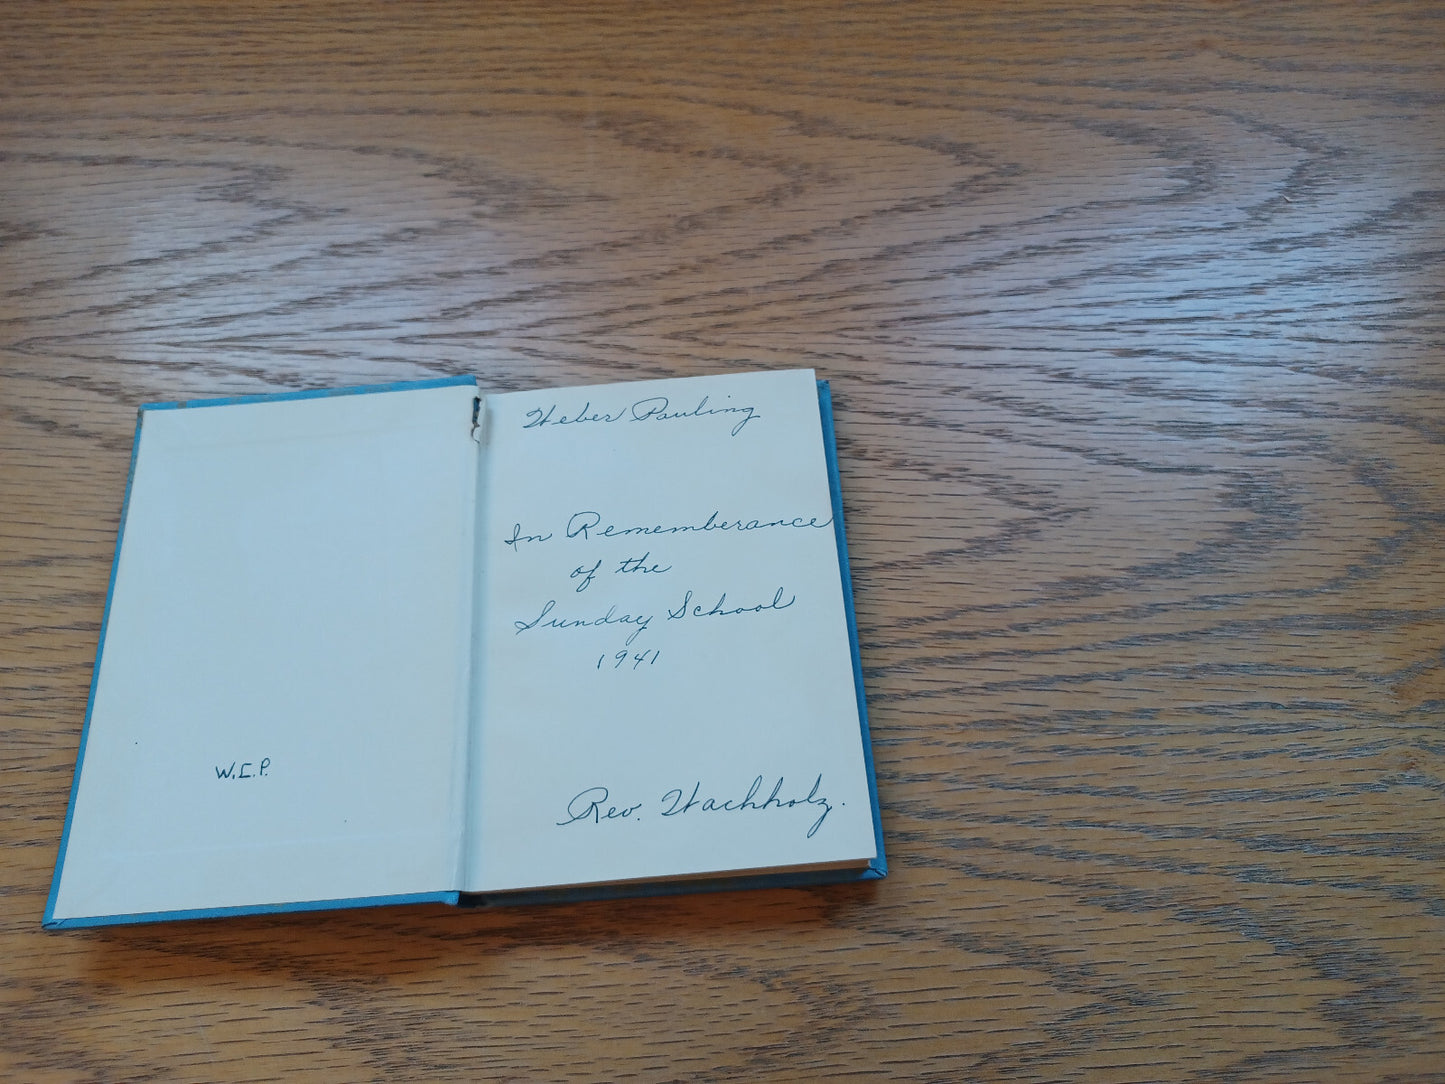 W.C.P.
Weber Pauling
In Rememberance
of the
Sunday School
1941
Rev. Wachholz.